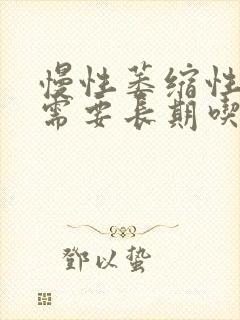 慢性萎缩性
需要长期喫
鄧以蛰